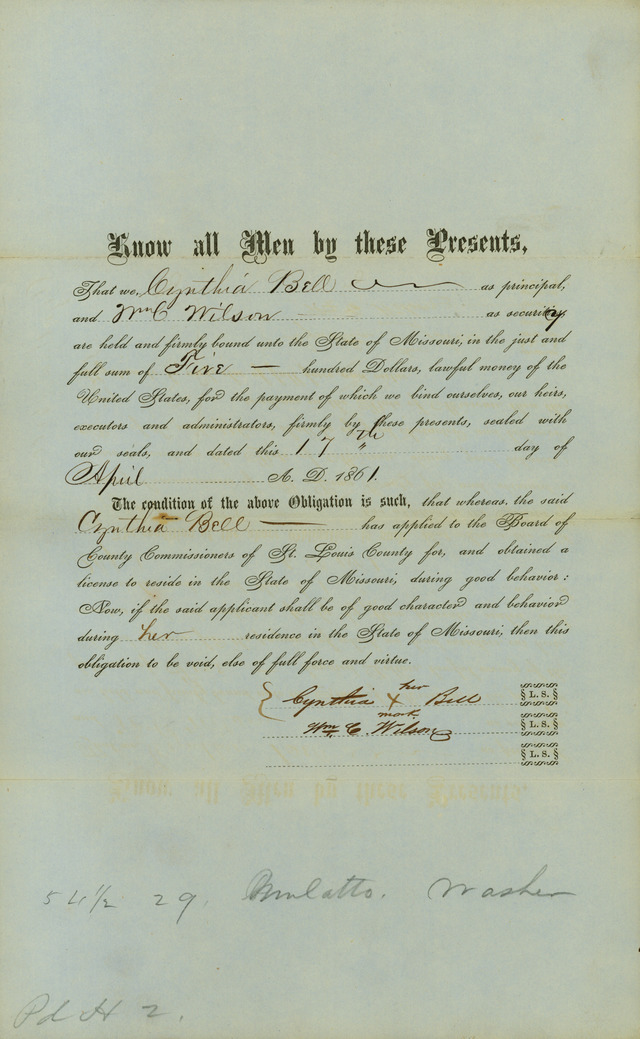 Know all Men by these Presents,
That we, Cynthia Bell as principal,
and Wm C Wilson as security,
are held and firmly bound unto the State of Missouri, in the just and
full sum of Five — hundred Dollars, lawful money of the
United States, for the payment of which we bind ourselves, our heirs,
executors and administrators, firmly by these presents, sealed with
our seals, and dated this 17th day of
April A. D. 1861.
The condition of the above Obligation is such, that whereas, the said
Cynthia Bell — has applied to the Board of
County Commissioners of St. Louis County for, and obtained a
license to reside in the State of Missouri, during good behavior:
Now, if the said applicant shall be of good character and behavior
during her residence in the State of Missouri, then this
obligation to be void, else of full force and virtue.
Cynthia her x mark Bell L. S.
Wm. C. Wilson L. S.
L. S.
29. Mulatto. Washer
Pd 2.